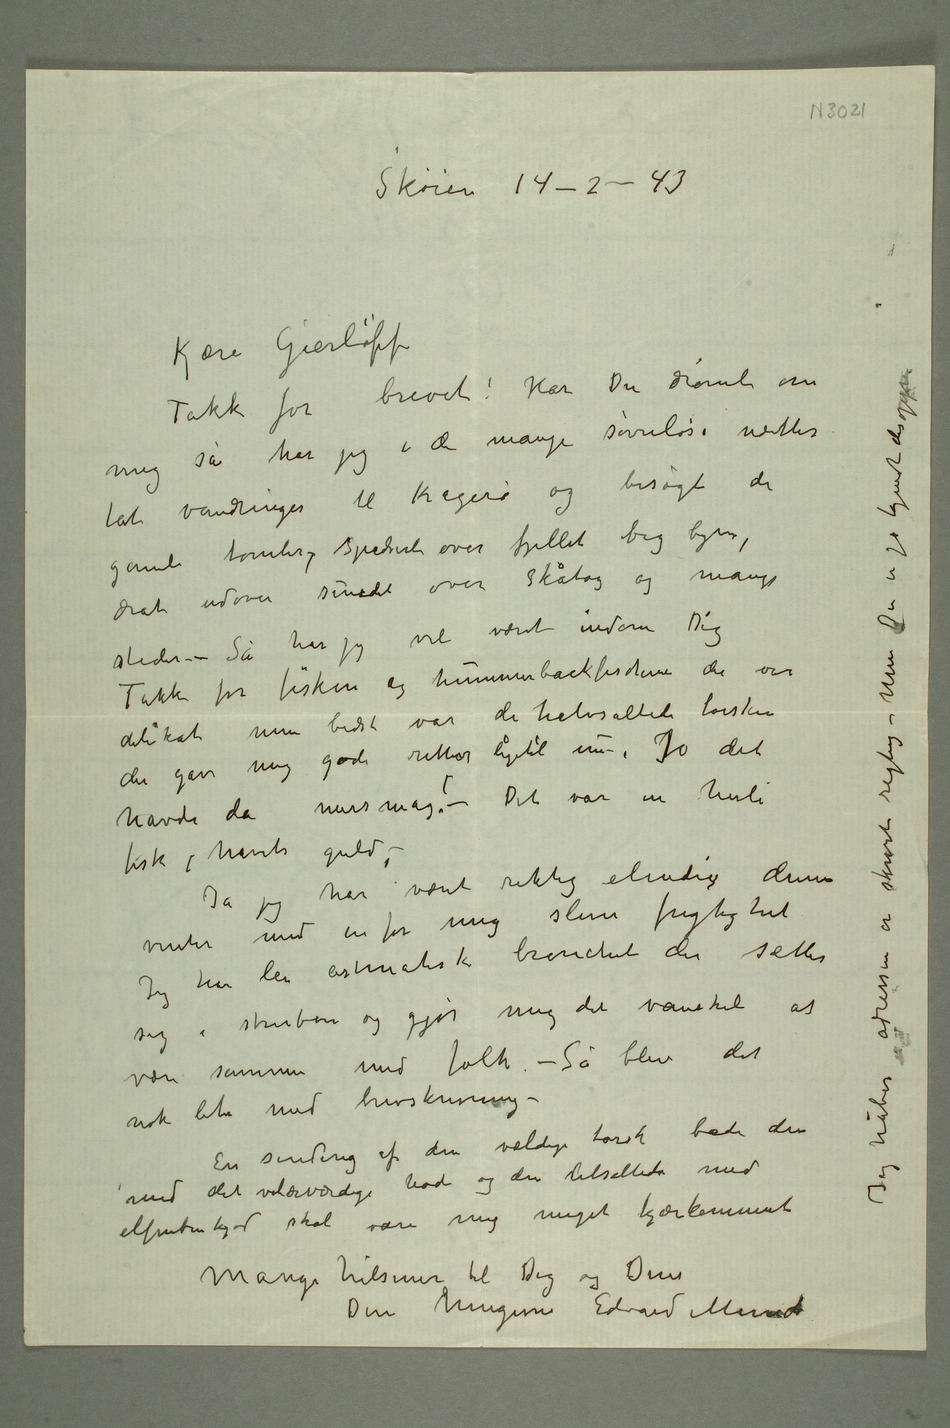 N3021
Skøien 14–2–43
Kjære Gierløff
Takk for brevet! Har Du drømt om
mig så har jeg i de mange søvnløse nætter
tat vandringer til Kragerø og besøgt de
gamle tomter, spadsert over fjellet bag byen,
drat udover sundet over Skåtøy og mange
steder – Så har jeg vel været indom Dig
Takk for fisken og hummerbackfisckene de var
delikat men bedst var de halvsaltede torsken
der gav mig gode retter ligetil nu. Jo det
havde da mersmag! – Det var en herli
fisk, havets guld, –
Ja jeg har været riktig elendig denne
vinter med en for mig slem frygtighet
Jeg har len astmatisk bronchit der setter
sig i struben og gjør mig det vanskel at
være sammen med folk. – Så blev det
nok lite med brevskrivning –
En sending af den vældige torsk både den
med det velærværdige hode og den letsaltede med
elfenbenkjød skal være mig meget kjærkomment
Mange hilsener til Dig og Dine
Din hengivne Edvard Munch
Jeg håber adressen er skrevet regtig – Men Du er jo kjendt deroppe